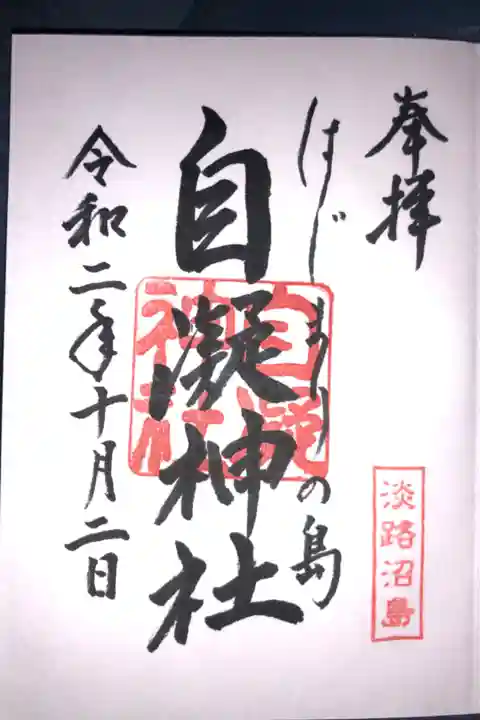 奉拝
淡路沼島
はじまりの島
自凝神社
自凝神社
令和二年十月二日